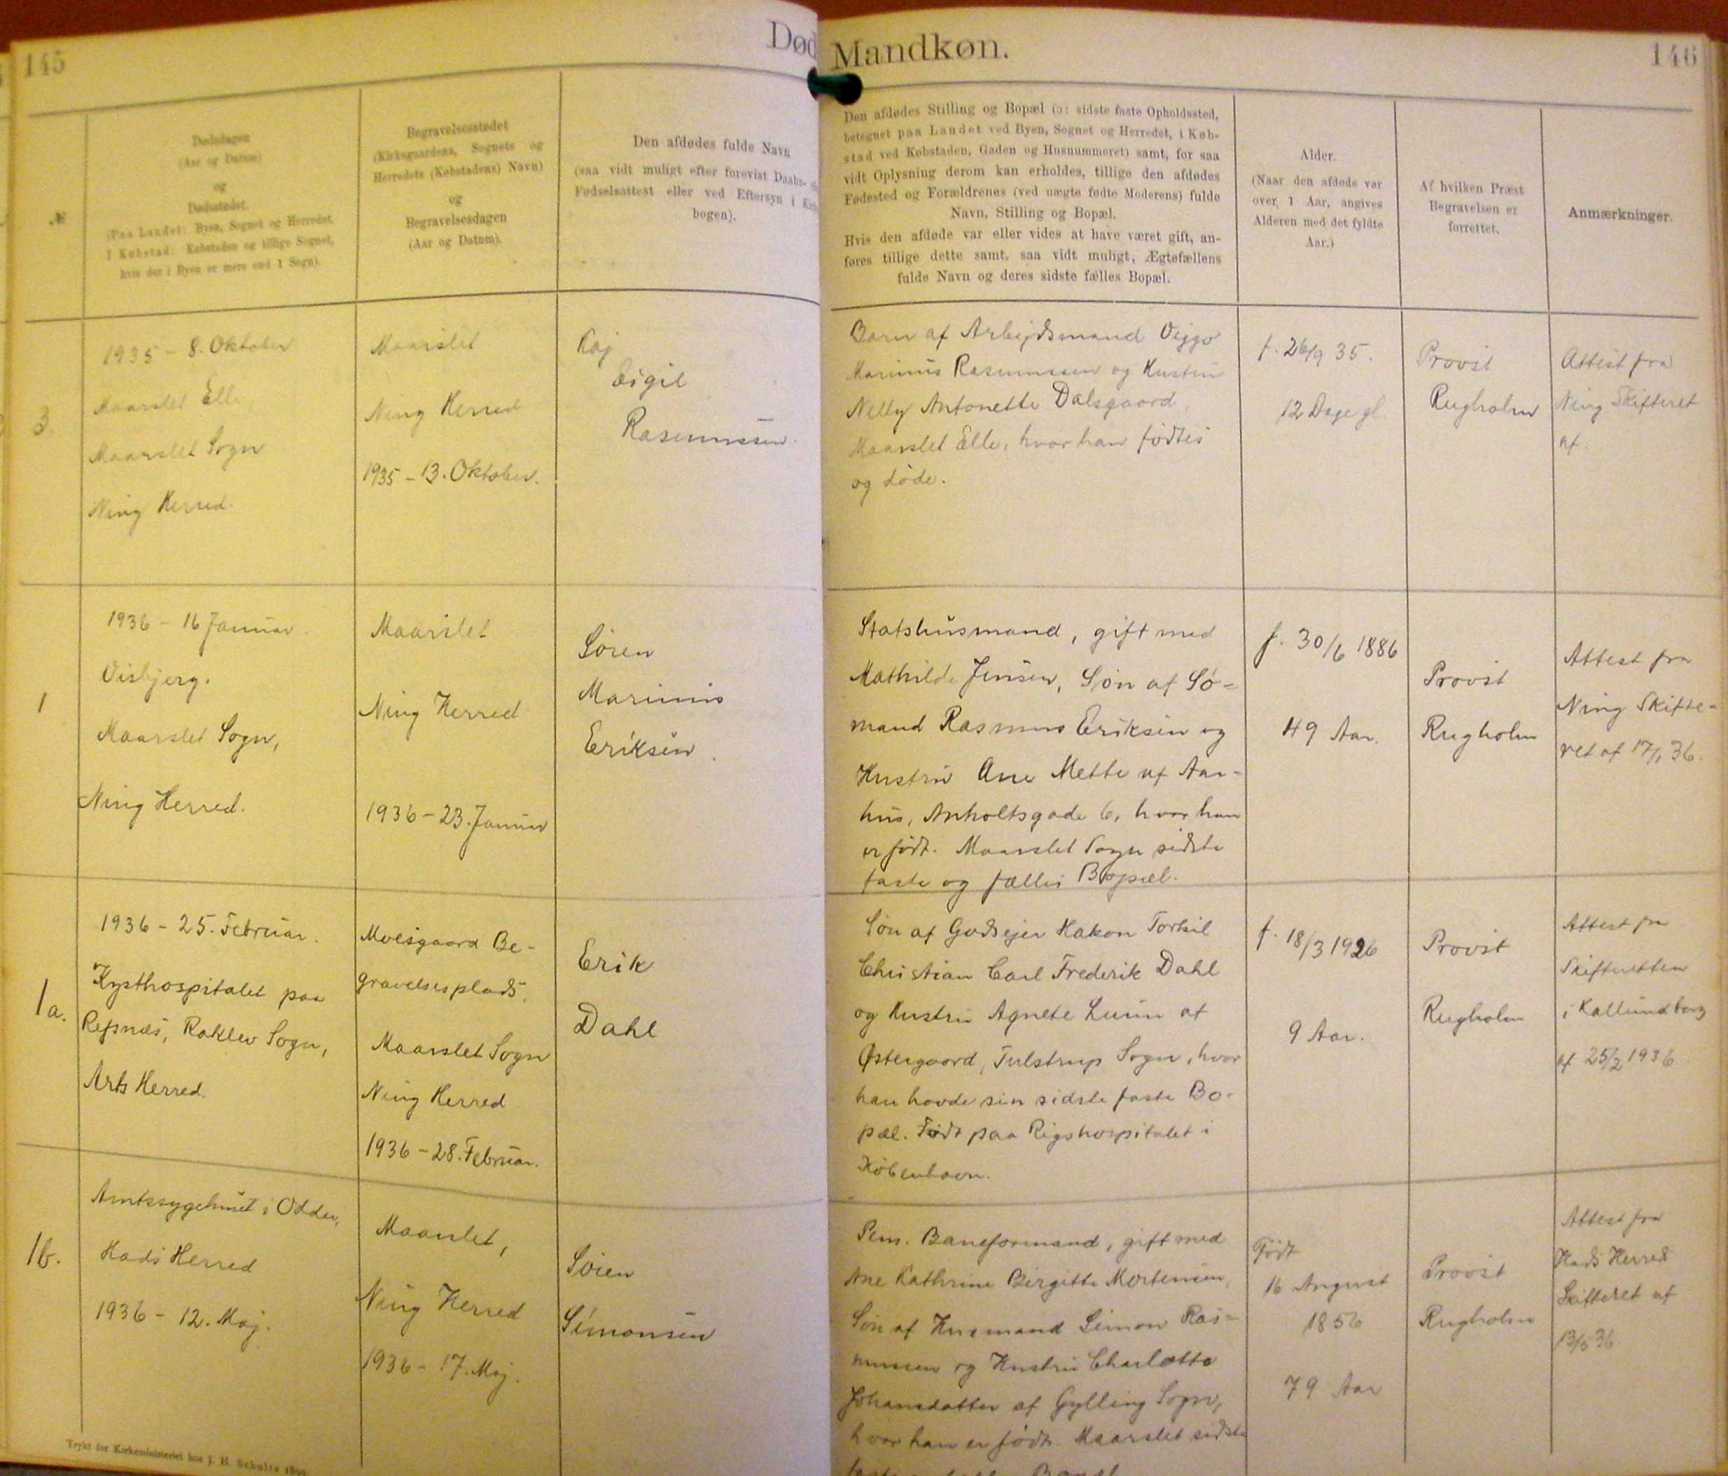 145
Død
Mandkøn.
146
№
Dødsdagen
(Aar og Datum)
og
Dødsstedet.
(Paa Landet: Byen, Sognet og Herredet,
I Købstad: Købstaden og tillige Sognet,
hvis der i Byen er mere end 1 Sogn).
Begravelsesstedet
(Kirkegaardens, Sognets og
Herredets (Købstadens) Navn)
og
Begravelsesdagen
(Aar og Datum).
Den afdødes fulde Navn
(saa vidt muligt efter forevist Daabs-
Fødselsattest eller ved Eftersyn i
bogen).
Den afdødes Stilling og Bopæl (ɔ: sidste faste Opholdssted,
betegnet paa Landet ved Byen, Sognet og Herredet, i Køb-
stad ved Købstaden, Gaden og Husnummeret) samt, for saa
vidt Oplysning derom kan erholdes, tillige den afdødes
Fødested og Forældrenes (ved uægte fødte Moderens) fulde
Navn, Stilling og Bopæl.
Hvis den afdøde var eller vides at have været gift, an-
føres tillige dette samt, saa vidt muligt, Ægtefællens
fulde Navn og deres sidste fælles Bopæl.
Alder.
(Naar den afdøde var
over 1 Aar, angives
Alderen med det fyldte
Aar.)
Af hvilken Præst
Begravelsen er
forrettet.
Anmærkninger.
3.
1935 - 8. Oktober
Maarslet Elle
Maarslet Sogn
Ning Herred.
Maarslet
Ning Herred
1935 - 13. Oktober.
Kaj
Eigil
Rasmussen.
Barn af Arbejdsmand Viggo
Marinus Rasmussen og Hustru
Nelly Antonette Dalsgaard
Maarslet Elle, hvor han fødtes
og døde.
f. 26/9 35.
12 Dage gl.
Provst
Rugholm
Attest fra
Ning Skifteret
af.
1
1936 - 16 Januar.
Visbjerg.
Maarslet Sogn,
Ning Herred.
Maarslet
Ning Herred
1936 - 23. Januar
Søren
Marinus
Eriksen.
Statshusmand, gift med
Mathilde Jensen, Søn af Sø-
mand Rasmus Eriksen og
Hustru Ane Mette af Aar-
hus, Anholtsgade 6, hvor han
er født. Maarslet Sogn sidste
faste og fælles Bopæl.
f. 30/6 1886
49 Aar.
Provst
Rugholm
Attest fra
Ning Skifte-
ret af 17/1 36.
1a.
1936 - 25. Februar.
Kysthospitalet paa
Refsnæs, Raklev Sogn,
Arts Herred.
Moesgaard Be-
gravelsesplads.
Maarslet Sogn
Ning Herred
1936 - 28. Februar.
Erik
Dahl
Søn af Godsejer Hakon Torkil
Christian Carl Frederik Dahl
og Hustru Agnete Lunn af
Østergaard, Tulstrup Sogn, hvor
han havde sin sidste faste Bo-
pæl. Født paa Rigshospitalet i
København.
f. 18/3 1926
9 Aar.
Provst
Rugholm
Attest fra
Skifteretten
i Kallundborg
af 25/2 1936
1b.
Amtssygehuset i Odder,
Hads Herred
1936 - 12. Maj.
Maarslet,
Ning Herred
1936 - 17. Maj.
Søren
Simonsen
Pens. Baneformand, gift med
Ane Kathrine Birgitte Mortensen,
Søn af Husmand Simon Ras-
mussen og Hustru Charlotte
Johansdatter af Gylling Sogn,
hvor han er født. Maarslet sidste
Født
16 August
1856
79 Aar
Provst
Rugholm
Attest fra
Hads Herred
Skifteret af
13/5 36
Trykt for Kirkeministeriet hos J. H. Schultz